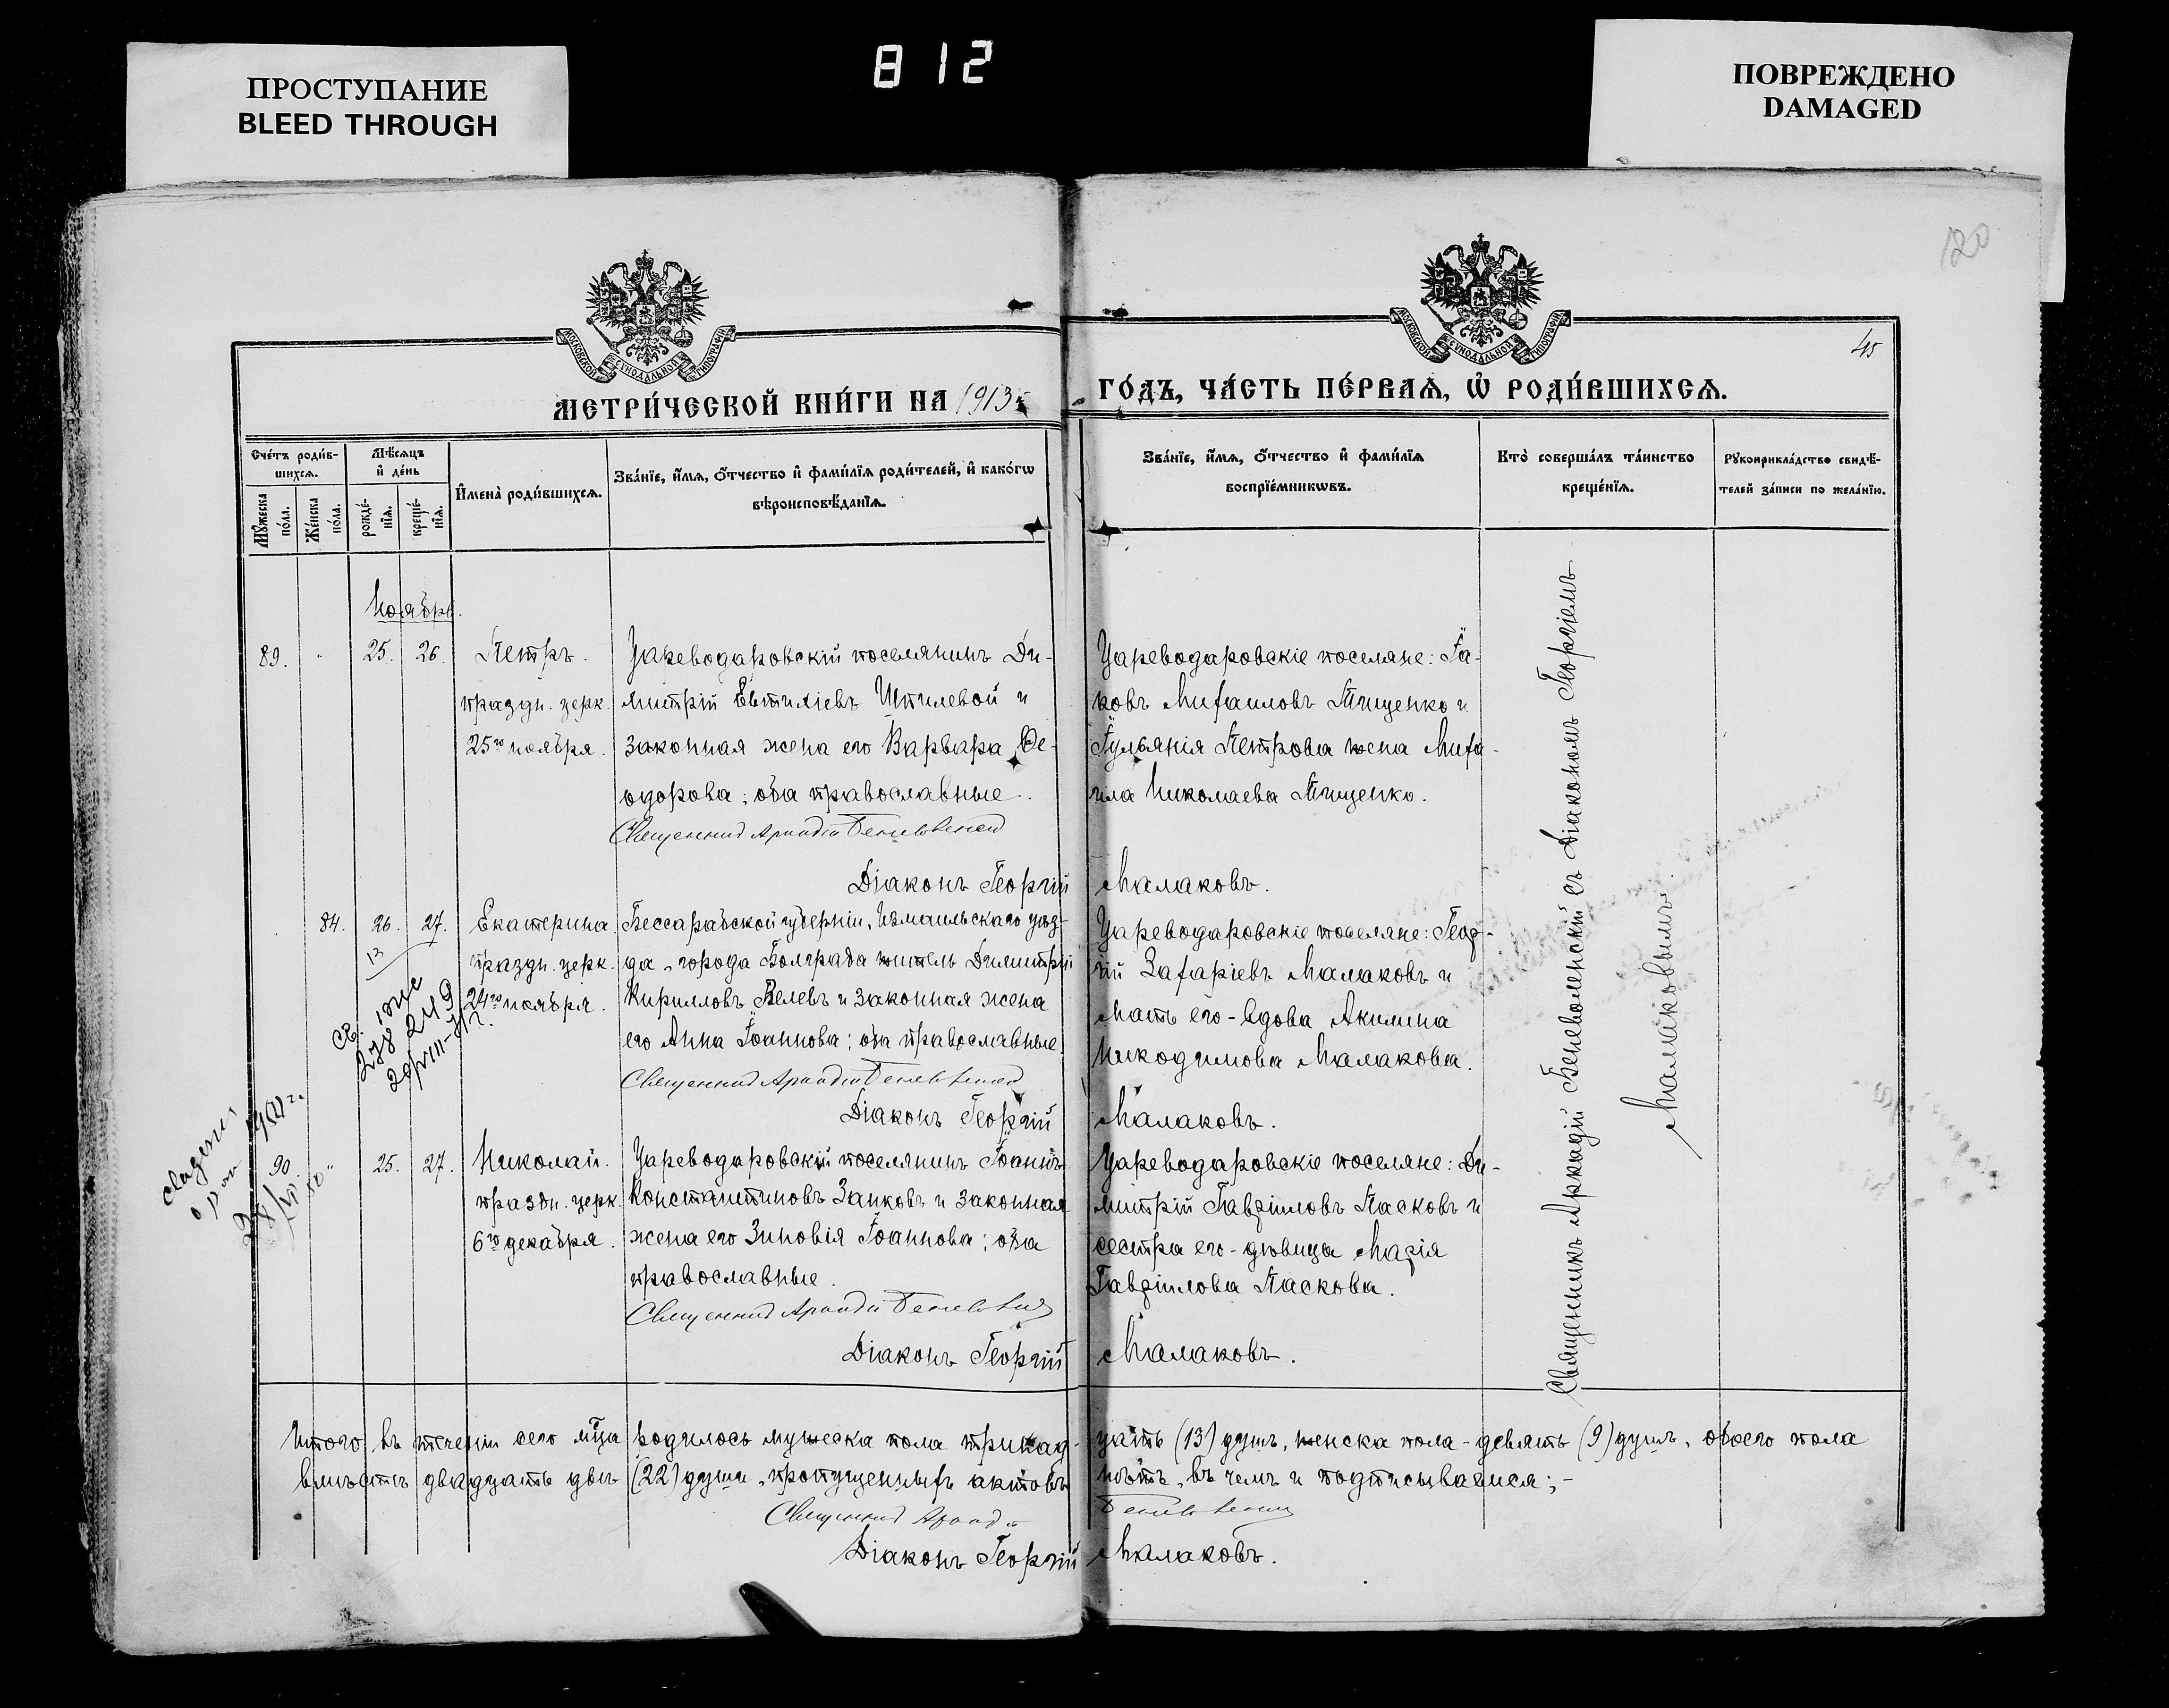 ПРОСТУПАНИЕ
BLEED THROUGH
812
ПОВРЕЖДЕНО
DAMAGED
120
45
МОСКОВСКОЙ СУНОДАЛЬНОЙ ТИПОГРАФІИ
МОСКОВСКОЙ СУНОДАЛЬНОЙ ТИПОГРАФІИ
МЕТРИ́ЧЕСКОЙ КНИ́ГИ НА 1913 ГО́ДЪ, ЧА́СТЬ ПЕ́РВАѦ, Ѡ҆ РОДИ́ВШИХСѦ.
Сче́тъ роди́в-
шихсѧ.
Мꙋ́жеска по́ла.
Же́нска по́ла.
Мѣ́сѧцъ
и҆ де́нь
рожде́-
нїѧ.
креще́-
нїѧ.
И҆мена̀ роди́вшихсѧ.
Зва́нїе, и҆́мѧ, ѻ҆́тчество и҆ фами́лїѧ роди́телей, и҆ како́гѡ
вѣроисповѣ́данїѧ.
Зва́нїе, и҆́мѧ, ѻ҆́тчество и҆ фами́лїѧ
воспрїе́мникѡвъ.
Кто̀ соверша́лъ та́инство
креще́нїѧ.
Рꙋкоприкла́дство свидѣ́-
телей за́писи по жела́нїю.
Ноябрь.
89. " 25. 26. Петръ.
праздн. церк.
25го ноября.
Цареводаровскій поселянинъ Ди-
митрій Евтихіевъ Шпилевой и
законная жена его Варвара Ѳе-
одорова; оба православные.
Священникъ Аркадій Беневоленскій
Діаконъ Георгій Малаковъ.
Цареводаровскіе поселяне: Іа-
ковъ Михаиловъ Тищенко и
Іульянія Петрова жена Миха-
ила Николаева Тищенко.
84. 26. 27. Екатерина
13
праздн. церк.
24го ноября.
Бессарабской губерніи, Измаильскаго уѣз-
да, города Болграда житель Димитрій
Кирилловъ Велевъ и законная жена
его Анна Іоаннова; оба православные.
Священникъ Аркадій Беневоленскій
Діаконъ Георгій Малаковъ.
Цареводаровскіе поселяне: Геор-
гій Захаріевъ Малаковъ и
мать его - вдова Акилина
Никодимова Малакова.
90. " 25. 27. Николай.
праздн. церк.
6го декабря.
Цареводаровскій поселянинъ Іоаннъ
Константиновъ Занковъ и законная
жена его Зиновія Іоаннова; оба
православные.
Священникъ Аркадій Беневоленскій
Діаконъ Георгій Малаковъ.
Цареводаровскіе поселяне: Ди-
митрій Гавріиловъ Пасковъ и
сестра его - дѣвица Марія
Гавріилова Паскова.
Священникъ Аркадій Беневоленскій съ Діакономъ Георгіемъ
Малаковымъ.
Итого въ теченіи сего мца родилось мужеска пола тринад-цать (13) душъ, женска пола - девять (9) душъ, обоего пола
вмѣстѣ двадцать двѣ (22) души, пропущенныхъ актовъ нѣтъ, въ чемъ и подписываемся; -
Священникъ Аркадій Беневоленскій
Діаконъ Георгій Малаковъ.